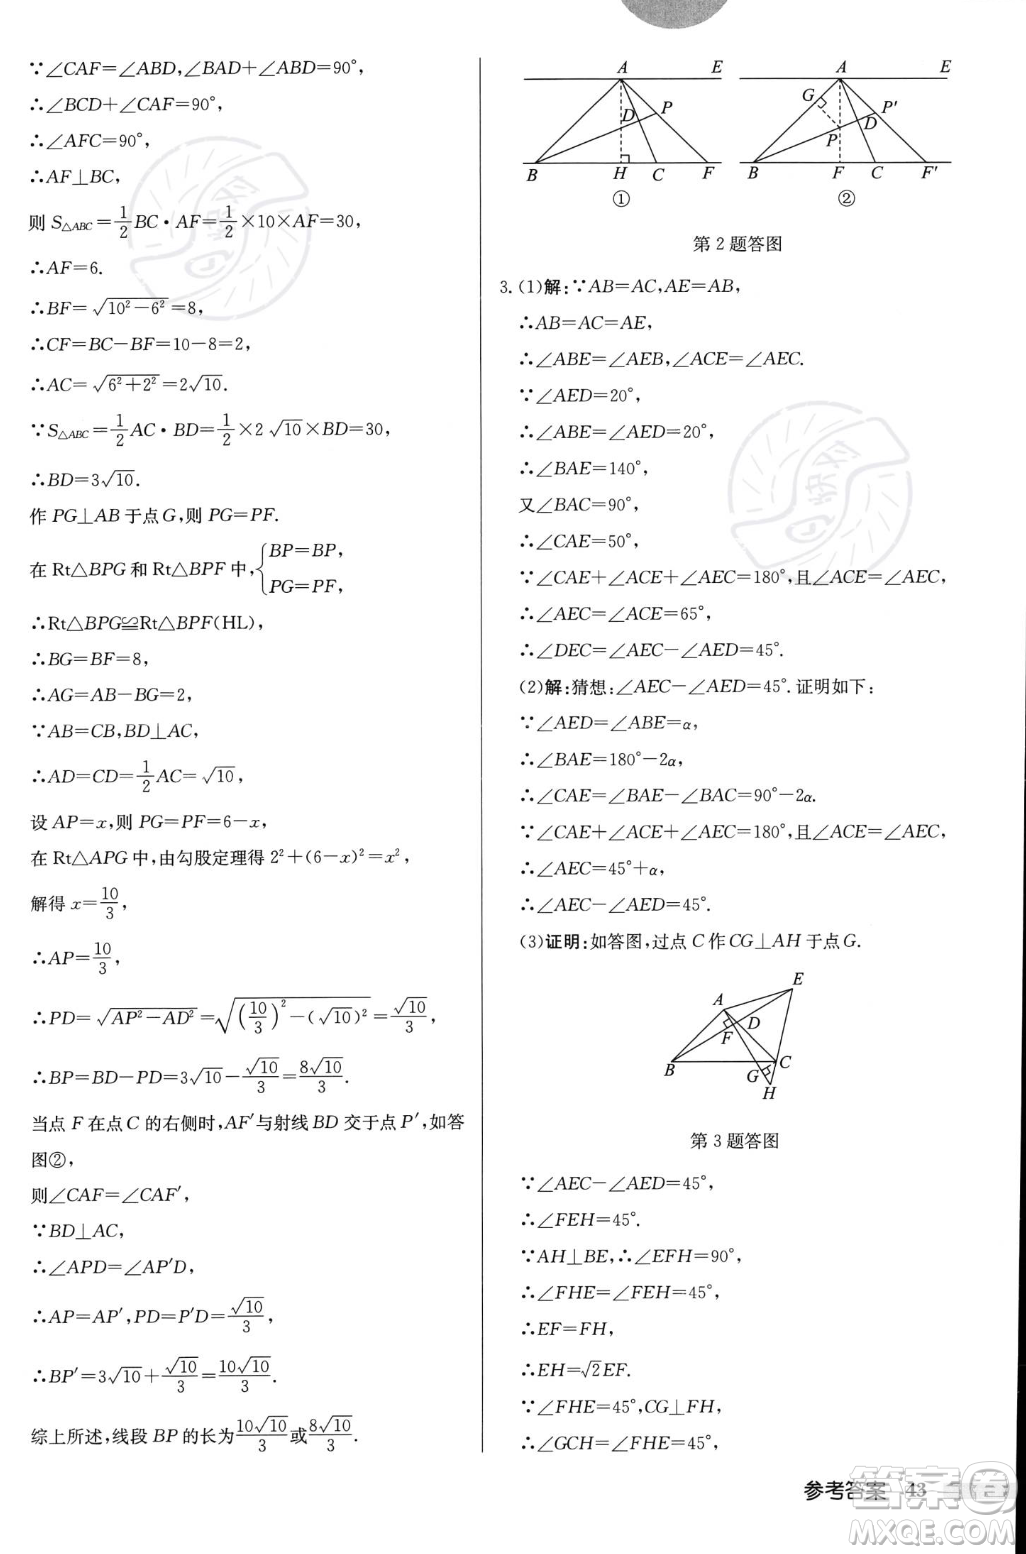 ∵∠CAF=∠ABD,∠BAD+∠ABD=90°,
∴∠BCD+∠CAF=90°,
∴∠AFC=90°,
∴AF⊥BC,
则 S△ABC=1/2 BC·AF=1/2×10×AF=30,
∴AF=6.
∴BF=√(10²-6²)=8,
∴CF=BC-BF=10-8=2,
∴AC=√(6²+2²)=2√10.
∵S△ABC=1/2 AC·BD=1/2×2√10×BD=30,
∴BD=3√10.
作 PG⊥AB 于点 G,则 PG=PF.
在 Rt△BPG 和 Rt△BPF 中,{BP=BP,
PG=PF,
∴Rt△BPG≌Rt△BPF(HL),
∴BG=BF=8,
∴AG=AB-BG=2,
∵AB=CB,BD⊥AC,
∴AD=CD=1/2 AC=√10,
设 AP=x,则 PG=PF=6-x,
在 Rt△APG 中,由勾股定理得 2²+(6-x)²=x²,
解得 x=10/3,
∴AP=10/3,
∴PD=√(AP²-AD²)=√((10/3)²-(√10)²)=√10/3,
∴BP=BD-PD=3√10-√10/3=8√10/3.
当点 F 在点 C 的右侧时,AF′与射线 BD 交于点 P′,如答
图②,
则∠CAF=∠CAF′,
∵BD⊥AC,
∴∠APD=∠AP′D,
∴AP=AP′,PD=P′D=√10/3,
∴BP′=3√10+√10/3=10√10/3.
综上所述,线段 BP 的长为10√10/3或8√10/3.
A E
D P
B H C F
①
A E
G P′
D
P
B F C F′
②
第 2 题答图
3.(1)解:∵AB=AC,AE=AB,
∴AB=AC=AE,
∴∠ABE=∠AEB,∠ACE=∠AEC.
∵∠AED=20°,
∴∠ABE=∠AED=20°,
∴∠BAE=140°,
又∠BAC=90°,
∴∠CAE=50°,
∵∠CAE+∠ACE+∠AEC=180°,且∠ACE=∠AEC,
∴∠AEC=∠ACE=65°,
∴∠DEC=∠AEC-∠AED=45°.
(2)解:猜想:∠AEC-∠AED=45°.证明如下:
∵∠AED=∠ABE=α,
∴∠BAE=180°-2α,
∴∠CAE=∠BAE-∠BAC=90°-2α.
∵∠CAE+∠ACE+∠AEC=180°,且∠ACE=∠AEC,
∴∠AEC=45°+α,
∴∠AEC-∠AED=45°.
(3)证明:如答图,过点 C 作 CG⊥AH 于点 G.
E
A
D
F
B C
G
H
第 3 题答图
∵∠AEC-∠AED=45°,
∴∠FEH=45°.
∵AH⊥BE,∴∠EFH=90°,
∴∠FHE=∠FEH=45°,
∴EF=FH,
∴EH=√2EF.
∵∠FHE=45°,CG⊥FH,
∴∠GCH=∠FHE=45°,
参考答案 43
答案卷
MXQE.COM